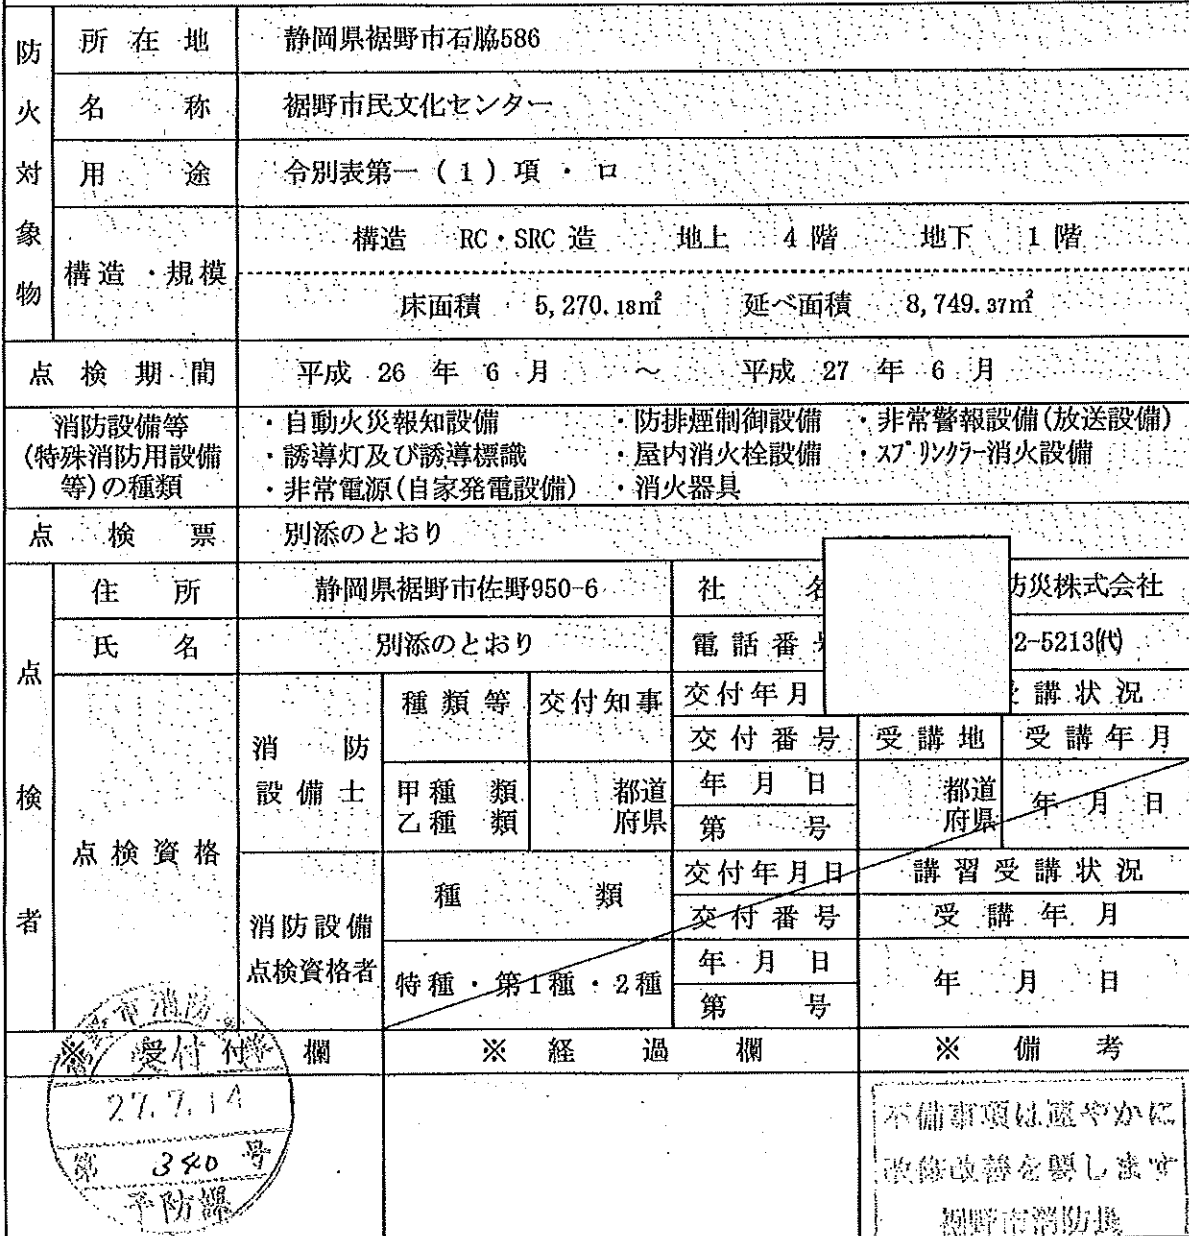 防火対象物
所在地 静岡県裾野市石脇586
名称 裾野市民文化センター
用途 令別表第一(1)項・ロ
構造・規模
構造 RC・SRC 造 地上 4 階 地下 1 階
床面積 5,270.18㎡ 延べ面積 8,749.37㎡
点検期間 平成 26 年 6 月 ～ 平成 27 年 6 月
消防設備等
(特殊消防用設備
等)の種類
・自動火災報知設備 ・防排煙制御設備 ・非常警報設備(放送設備)
・誘導灯及び誘導標識 ・屋内消火栓設備 ・ｽﾌﾟﾘﾝｸﾗｰ消火設備
・非常電源(自家発電設備) ・消火器具
点検票 別添のとおり
点検者
住所 静岡県裾野市佐野950-6 社 防災株式会社
氏名 別添のとおり 電話番 2-5213(代)
点検資格
消防
設備士
種類等 交付知事 交付年月 受講状況
交付番号 受講地 受講年月
甲種 類 都道 年月日 都道 年月日
乙種 類 府県 第 号 府県
消防設備
点検資格者
種類 交付年月日 講習受講状況
交付番号 受講年月
特種・第1種・2種 年月日 年月日
第 号
※ 受付欄 ※ 経過欄 ※ 備考
裾野市消防
受付
27.7.14
第 340 号
予防課
不備事項は速やかに
改修改善を要します
裾野市消防長